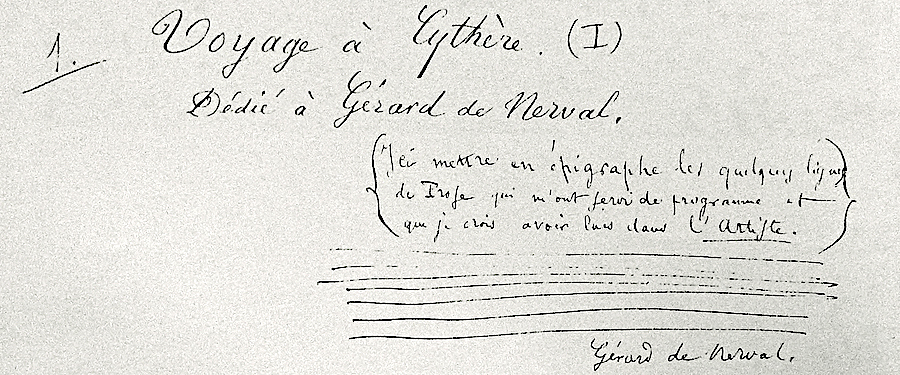 1. Voyage à Cythère. (I)
Dédié à Gérard de Nerval.
Ici mettre en épigraphe les quelques lignes
de Prose qui m'ont servi de programme et
que je crois avoir lues dans l'Artiste.
Gérard de Nerval.